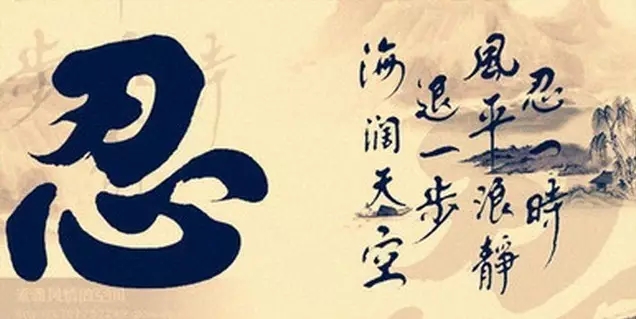 忍
忍一時
風平浪靜
退一步
海濶天空